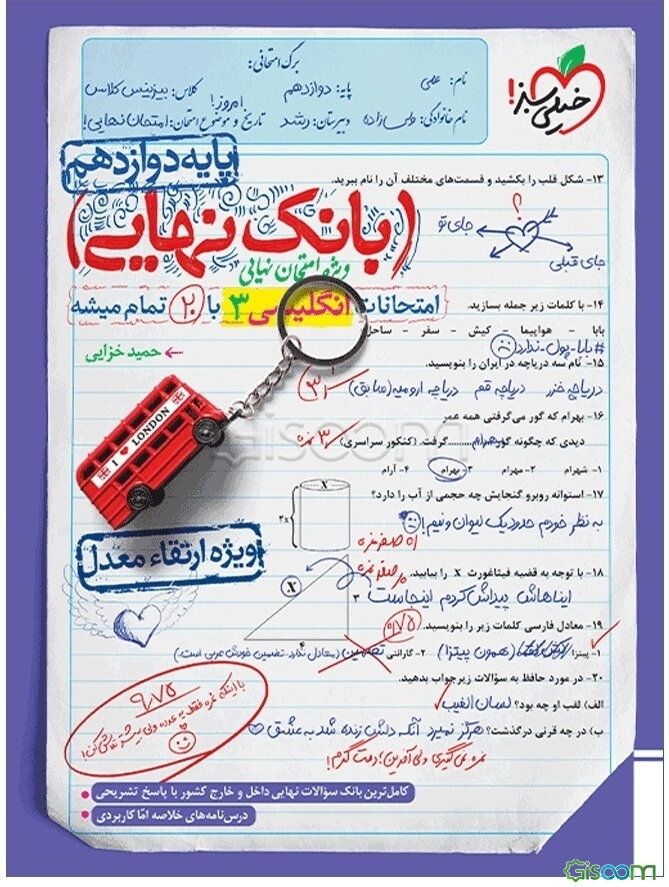 خیلی سبز!
برگ امتحانی:
نام: علی
پایه: دوازدهم
کلاس: بیزینس کلاس
نام خانوادگی: ولی‌زاده
دبیرستان: رشد
تاریخ و موضوع امتحان: امتحان نهایی!
امروز!
پایه دوازدهم
(بانک نهایی)
ویژه امتحان نهایی
امتحانات انگلیسی ۳ با ۲۰ تمام میشه
حمید خزایی
I LONDON
ویژه ارتقاء معدل
۱۳- شکل قلب را بکشید و قسمت‌های مختلف آن را نام ببرید.
؟
جای تو
جای قبلی
۱۴- با کلمات زیر جمله بسازید.
بابا - هواپیما - کیش - سفر - ساحل
#بابا_پول_ندارد
۱۵- نام سه دریاچه در ایران را بنویسید.
دریاچه خزر دریاچه قم دریاچه ارومیه (سابق)
۱۶- بهرام که گور می‌گرفتی همه عمر
دیدی که چگونه گور بهرام گرفت. (کنکور سراسری)
۳ نمره
۱- شهرام ۲- مهرام ۳- بهرام ۴- آرام
۱۷- استوانه روبرو گنجایش چه حجمی از آب را دارد؟
X
۲x
به نظر خودم حدود یک لیوان و نیم!
صفر نمره
۱۸- با توجه به قضیه فیثاغورث X را بیابید.
X
۳
۴
ایناهاش پیداش کردم اینجاست
صفر نمره
۱۹- معادل فارسی کلمات زیر را بنویسید.
۰/۷۵
۱- پیتزا (همون پیتزا) ۲- گارانتی تضمین (معادل ندارد. تضمین خودش عربی است.)
۲۰- در مورد حافظ به سؤالات زیر جواب بدهید.
الف) لقب او چه بود؟ لسان الغیب
ب) در چه قرنی درگذشت؟ هرگز نمیرد آنکه دلش زنده شد به عشق
نمره نمی‌گیری ولی آفرین؛ دمت گرم!
۹/۷۵
کامل‌ترین بانک سوالات نهایی داخل و خارج کشور با پاسخ تشریحی
درس‌نامه‌های خلاصه امّا کاربردی
Giscoom
Giscoom